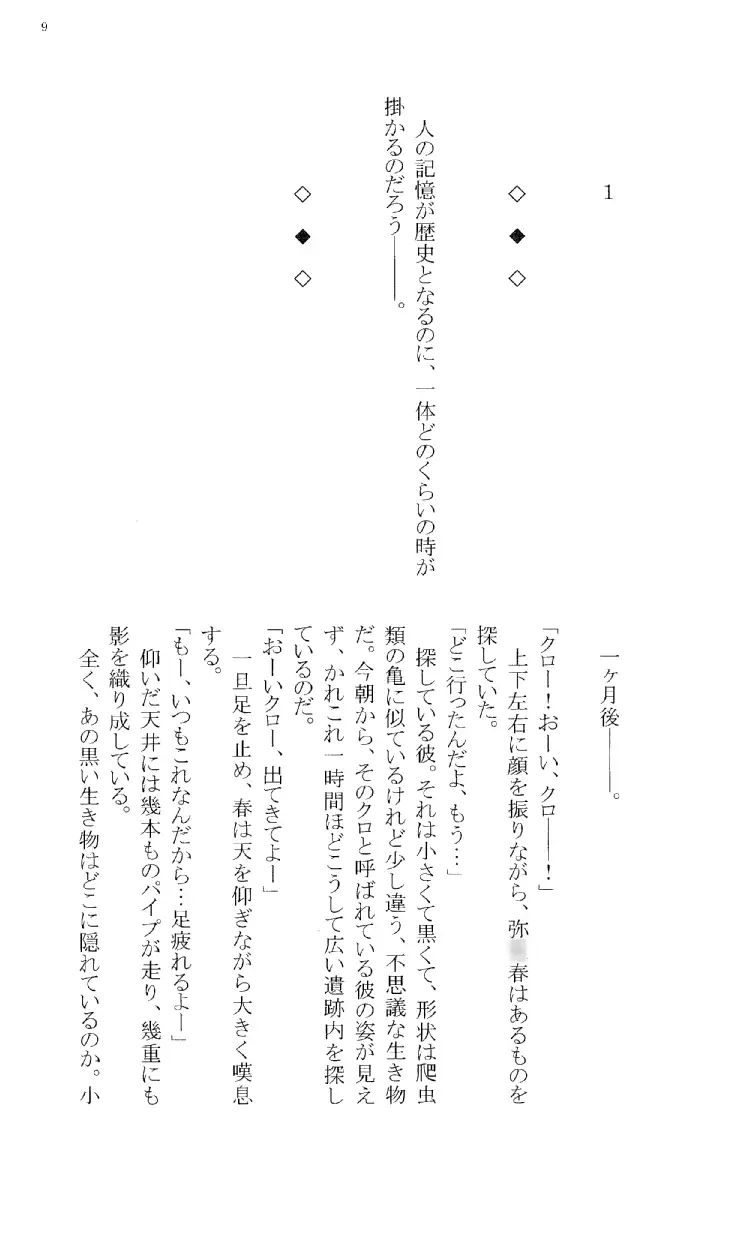 9
1
◇ ◆ ◇
人の記憶が歴史となるのに、一体どのくらいの時が
掛かるのだろう――。
◇ ◆ ◇
一ヶ月後――。
「クロー！おーい、クロ――！」
上下左右に顔を振りながら、弥 春はあるものを
探していた。
「どこ行ったんだよ、もう…」
探している彼。それは小さくて黒くて、形状は爬虫
類の亀に似ているけれど少し違う、不思議な生き物
だ。今朝から、そのクロと呼ばれている彼の姿が見え
ず、かれこれ一時間ほどこうして広い遺跡内を探し
ているのだ。
「おーいクロー、出てきてよー」
一旦足を止め、春は天を仰ぎながら大きく嘆息
する。
「もー、いつもこれなんだから…足疲れるよー」
仰いだ天井には幾本ものパイプが走り、幾重にも
影を織り成している。
全く、あの黒い生き物はどこに隠れているのか。小